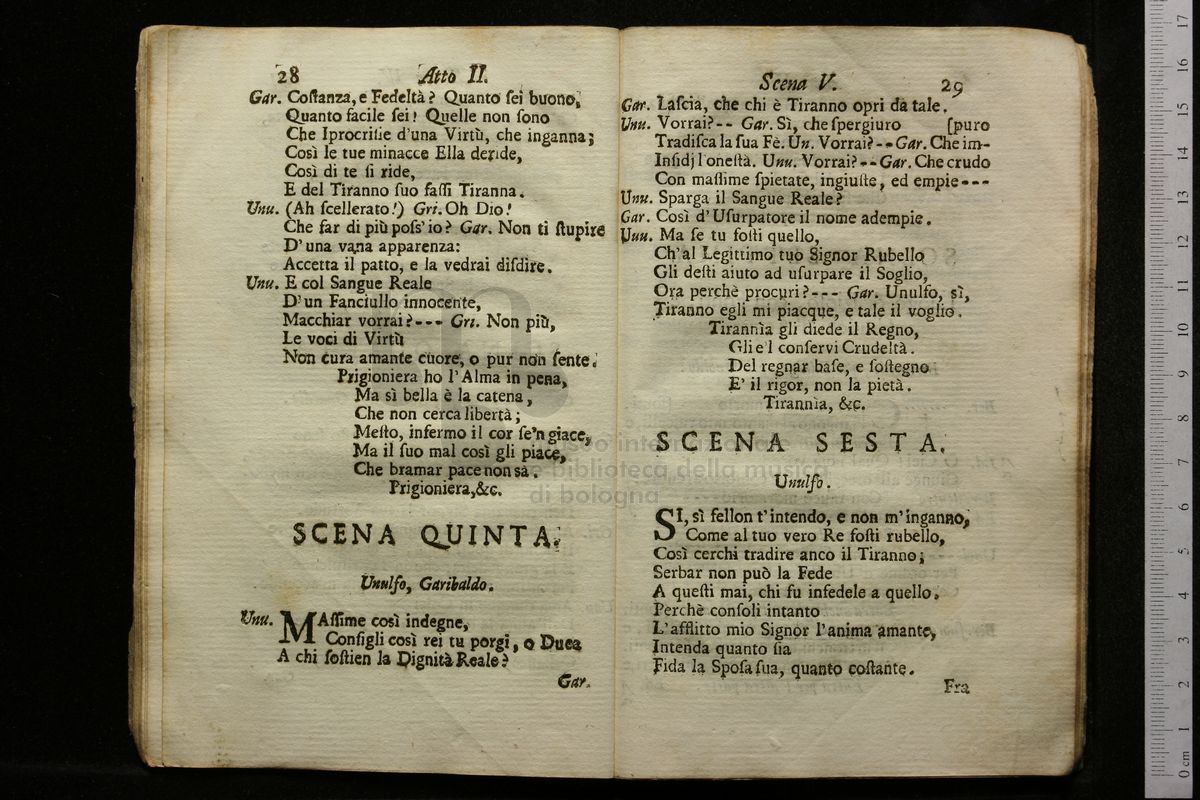 28 Atto II.
Gar. Coſtanza, e Fedeltà? Quanto ſei buono,
Quanto facile ſei! Quelle non ſono
Che Iprocriſie d'una Virtù, che inganna;
Così le tue minacce Ella deride,
Così di te ſi ride,
E del Tiranno ſuo faſſi Tiranna.
Unu. (Ah ſcellerato!) Gri. Oh Dio!
Che far di più poſs'io? Gar. Non ti ſtupire
D'una vana apparenza:
Accetta il patto, e la vedrai diſdire.
Unu. E col Sangue Reale
D'un Fanciullo innocente,
Macchiar vorrai?--- Gri. Non più,
Le voci di Virtù
Non cura amante cuore, o pur non ſente.
Prigioniera ho l'Alma in pena,
Ma sì bella è la catena,
Che non cerca libertà;
Meſto, infermo il cor ſe'n giace,
Ma il ſuo mal così gli piace,
Che bramar pace non sà.
Prigioniera, &c.
SCENA QUINTA.
Unulfo, Garibaldo.
Unu. MAſſime così indegne,
Conſigli così rei tu porgi, o Duca
A chi ſoſtien la Dignità Reale?
Gar.
Scena V. 29
Gar. Laſcia, che chi è Tiranno opri da tale.
Unu. Vorrai?-- Gar. Sì, che ſpergiuro [puro
Tradiſca la ſua Fè. Un. Vorrai?-- Gar. Che im-
Inſidj l'oneſtà. Unu. Vorrai?-- Gar. Che crudo
Con maſſime ſpietate, ingiuſte, ed empie---
Unu. Sparga il Sangue Reale?
Gar. Così d'Uſurpatore il nome adempie.
Uuu. Ma ſe tu foſti quello,
Ch'al Legittimo tuo Signor Rubello
Gli deſti aiuto ad uſurpare il Soglio,
Ora perchè procuri?--- Gar. Unulfo, sì,
Tiranno egli mi piacque, e tale il voglio.
Tirannìa gli diede il Regno,
Gli el conſervi Crudeltà.
Del regnar baſe, e ſoſtegno
E' il rigor, non la pietà.
Tirannìa, &c.
SCENA SESTA.
Unulfo.
SI, sì fellon t'intendo, e non m'inganno,
Come al tuo vero Re foſti rubello,
Così cerchi tradire anco il Tiranno;
Serbar non può la Fede
A queſti mai, chi fu infedele a quello.
Perchè conſoli intanto
L'afflitto mio Signor l'anima amante,
Intenda quanto ſia
Fida la Spoſa ſua, quanto coſtante.
Fra
museo internazionale
e biblioteca della musica
di bologna
0 cm 1 2 3 4 5 6 7 8 9 10 11 12 13 14 15 16 17